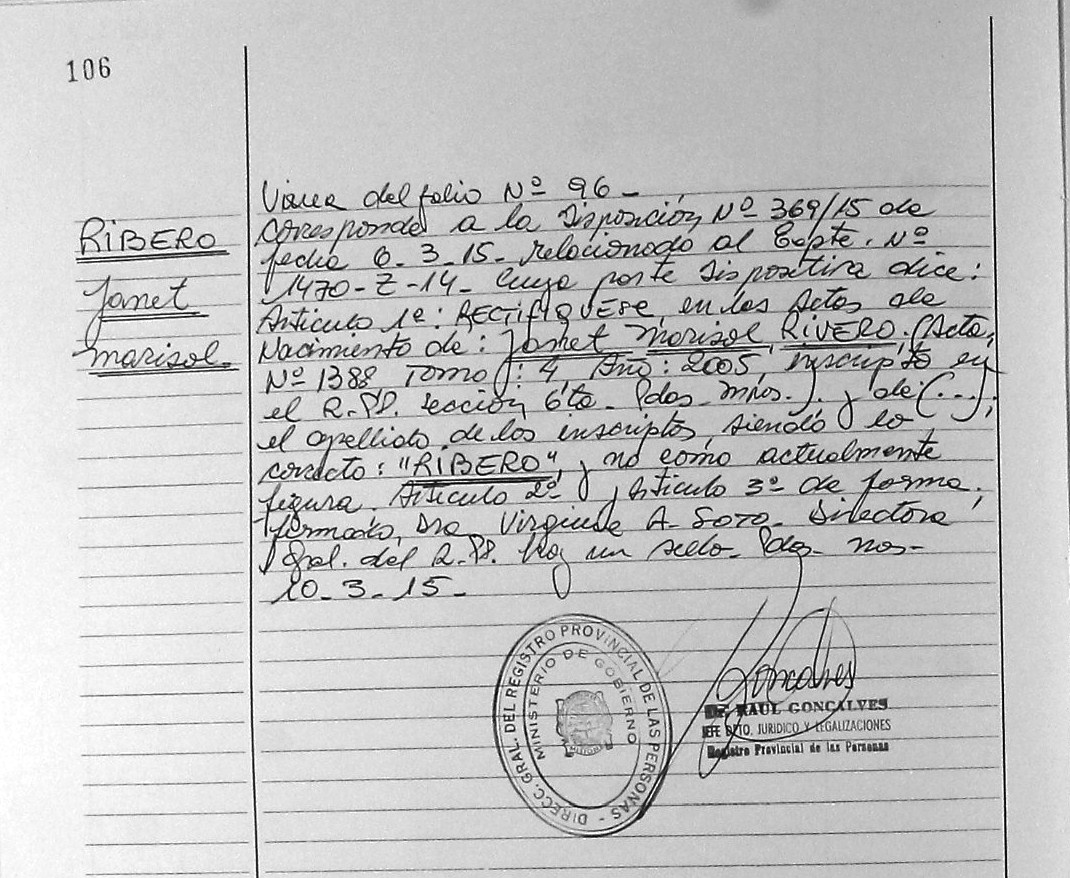 106
RIBERO
Janet
Marisol.-
Viene del folio Nº 96 -
Corresponde a la Disposición Nº 369/15 de
fecha 6-3-15- relacionado al Expte. Nº
1470-Z-14- Cuya parte Dispositiva dice:
Articulo 1º: RECTIFIQUESE, en las Actas de
Nacimiento de: Janet Marisol RIVERO, (Acta,
Nº 1388, Tomo: 4, Año: 2005, inscripto en
el R.PP. Sección 6ta- Pdas- Mnes.), y de (...);
el apellido de los inscriptos, siendo lo
correcto: "RIBERO", y no como actualmente
figura. Articulo 2º y Articulo 3º de forma.
firmado, Dra. A. Soto- Directora
Gral. del R.PP. Hay un sello- Pdas- Mnes-
10-3-15-
DIRECC. GRAL. DEL REGISTRO PROVINCIAL DE LAS PERSONAS -
MINISTERIO DE GOBIERNO
Goncalves
Dr. RAUL GONCALVES
JEFE DPTO. JURIDICO Y LEGALIZACIONES
Registro Provincial de las Personas